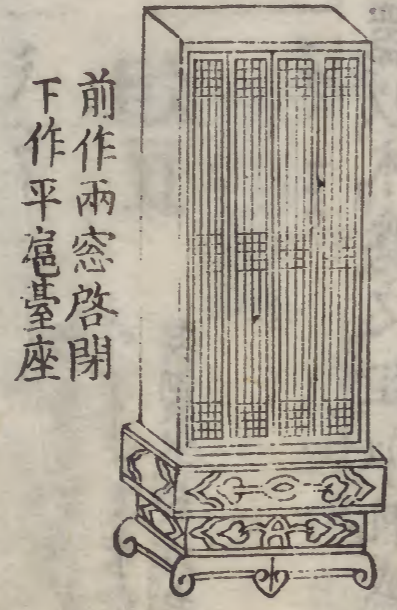 前作兩窓啓閉
下作平㢙臺座